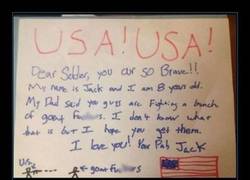 USA! USA!
Dear Solder, you our so Brave!!
My name is Jack and I am 8 years old.
My Dad said you guys are Fighting a bunch
of goat Fu s. I don't know what
that is but I hope you get them.
I love you! Your Pal, Jack
goat Fu s